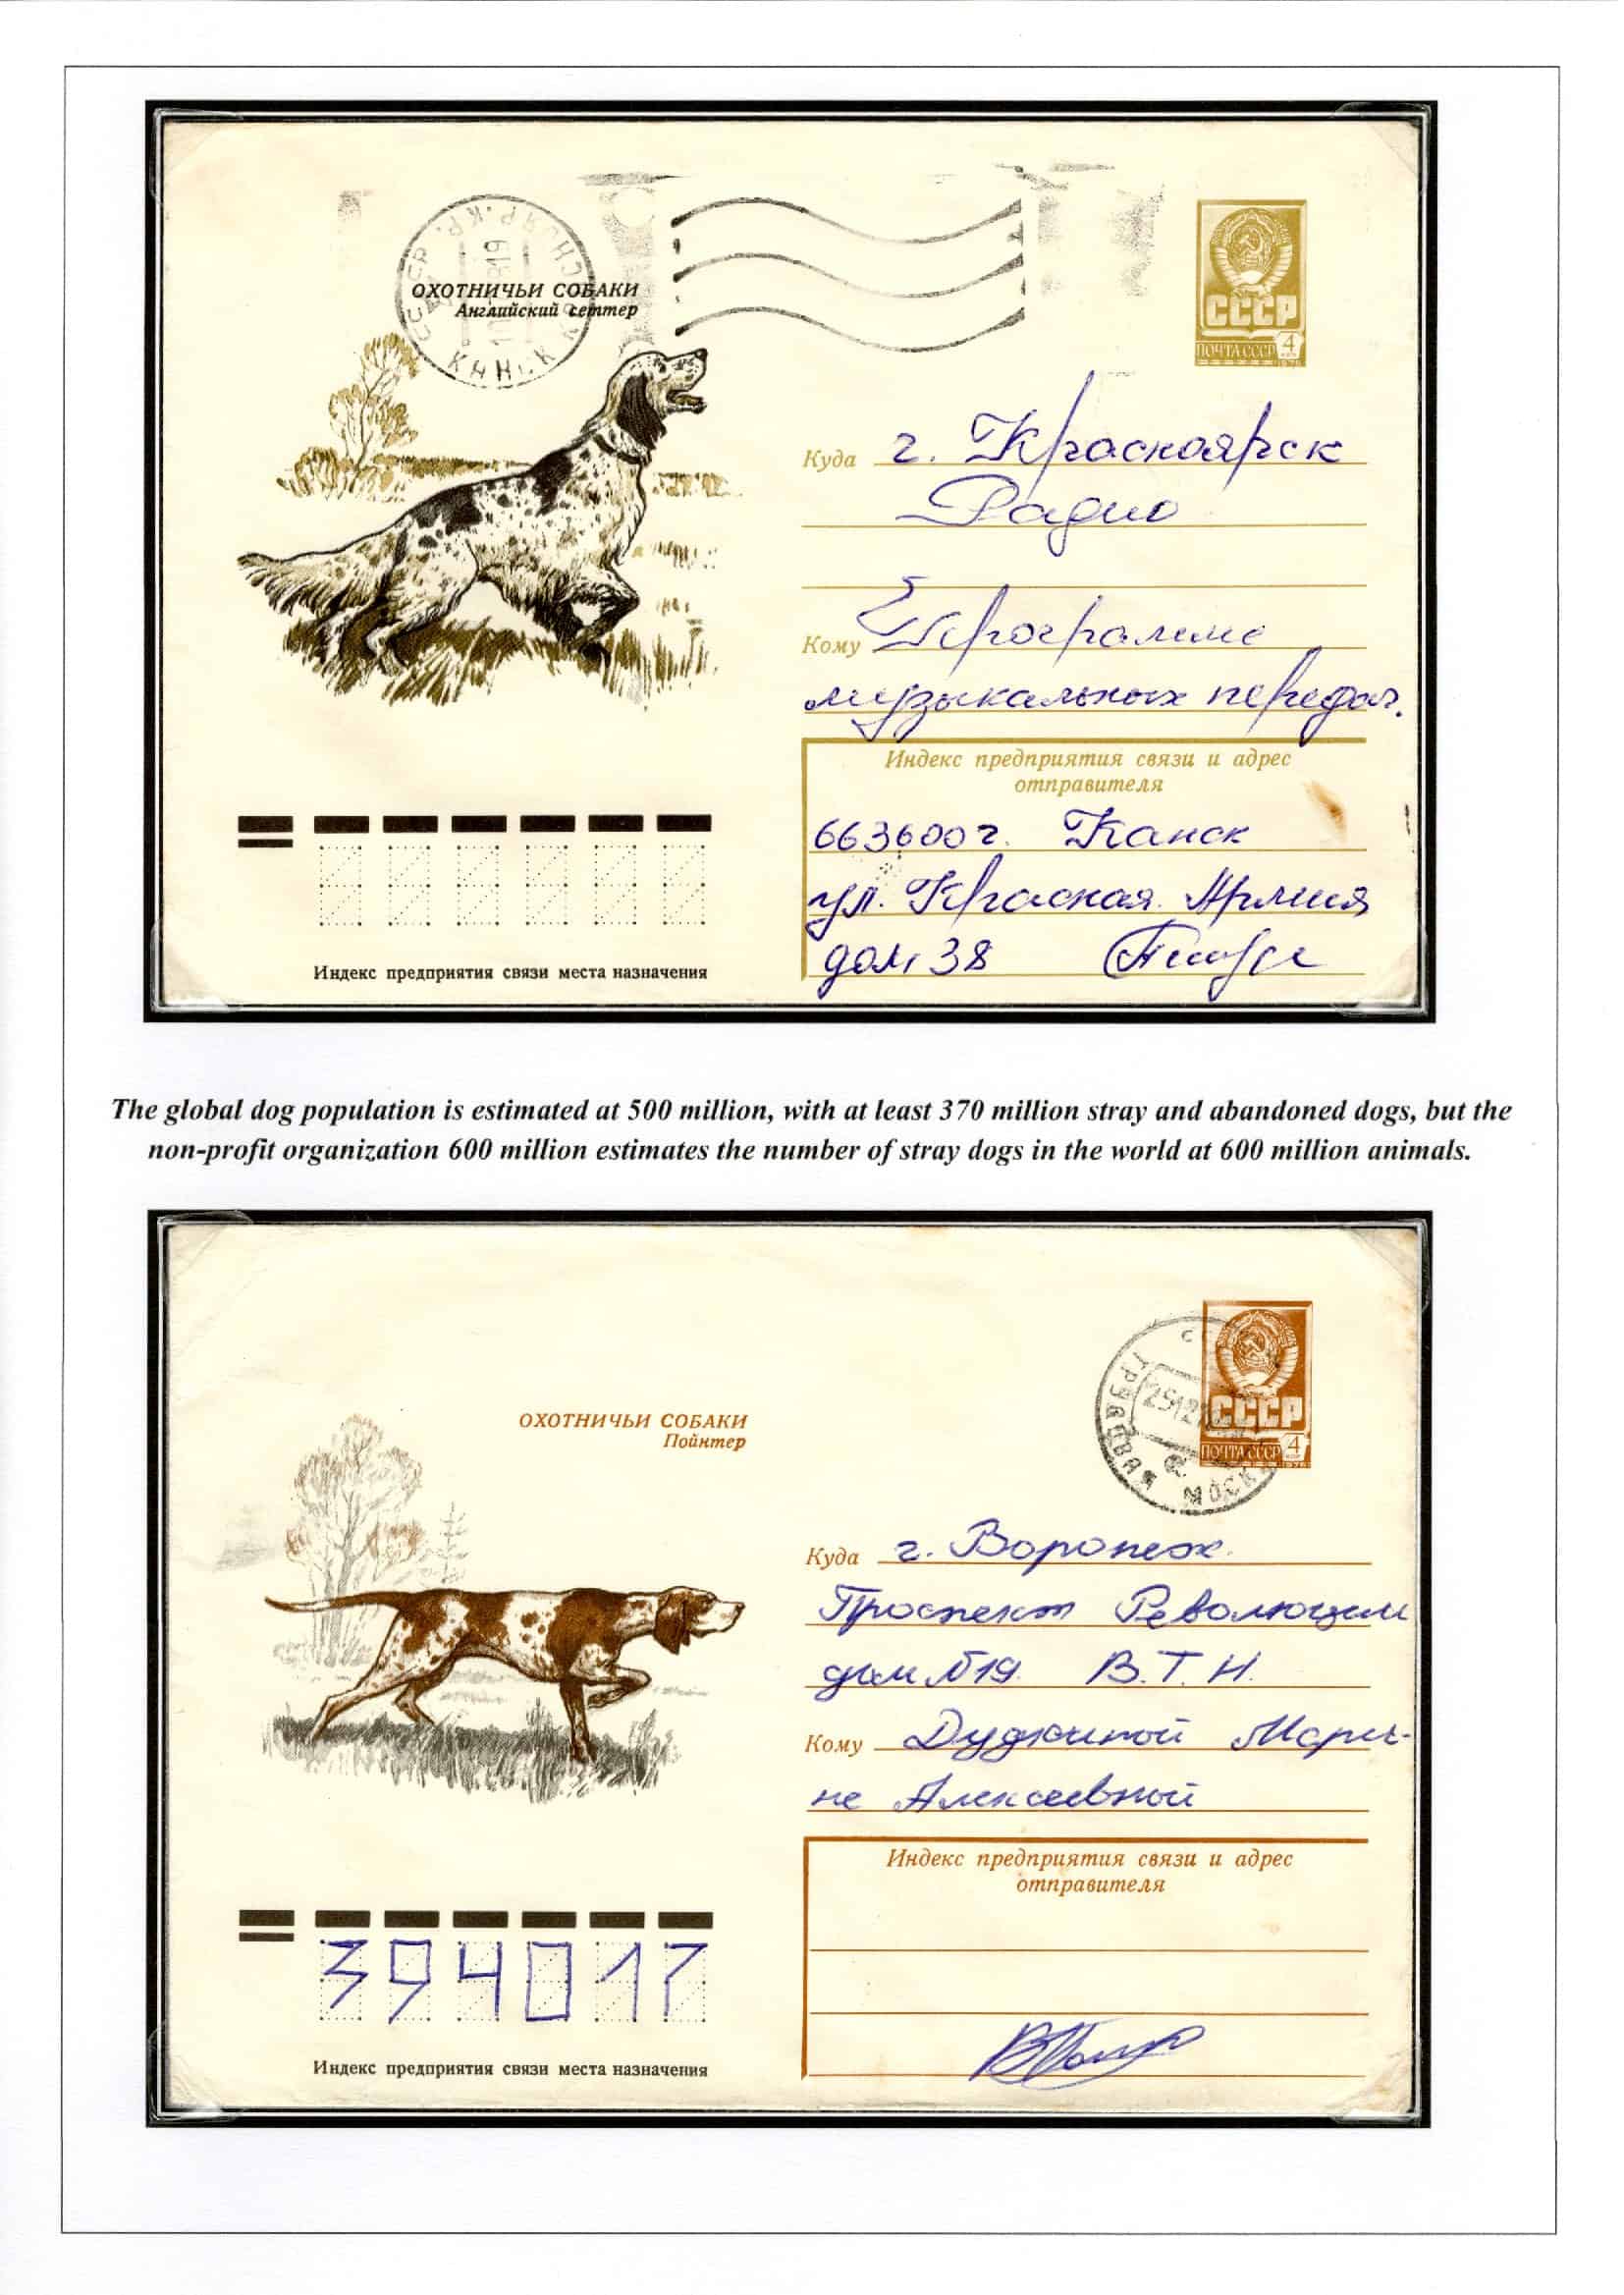 СССР
КАНСК
ОХОТНИЧЬИ СОБАКИ
Английский сеттер
СССР
ПОЧТА СССР 4
Куда г. Красноярск
Радио
Кому Программе
музыкальных передач.
Индекс предприятия связи и адрес
отправителя
663600 г. Канск
ул. Красная Армия
дом 38
Индекс предприятия связи места назначения
The global dog population is estimated at 500 million, with at least 370 million stray and abandoned dogs, but the
non-profit organization 600 million estimates the number of stray dogs in the world at 600 million animals.
СССР
ПОЧТА СССР 4
МОСК
ОХОТНИЧЬИ СОБАКИ
Пойнтер
Куда г. Воронеж.
Проспект Революции
дом №19. В.Т.Н.
Кому Мари-
не Алексеевной
Индекс предприятия связи и адрес
отправителя
394017
Индекс предприятия связи места назначения